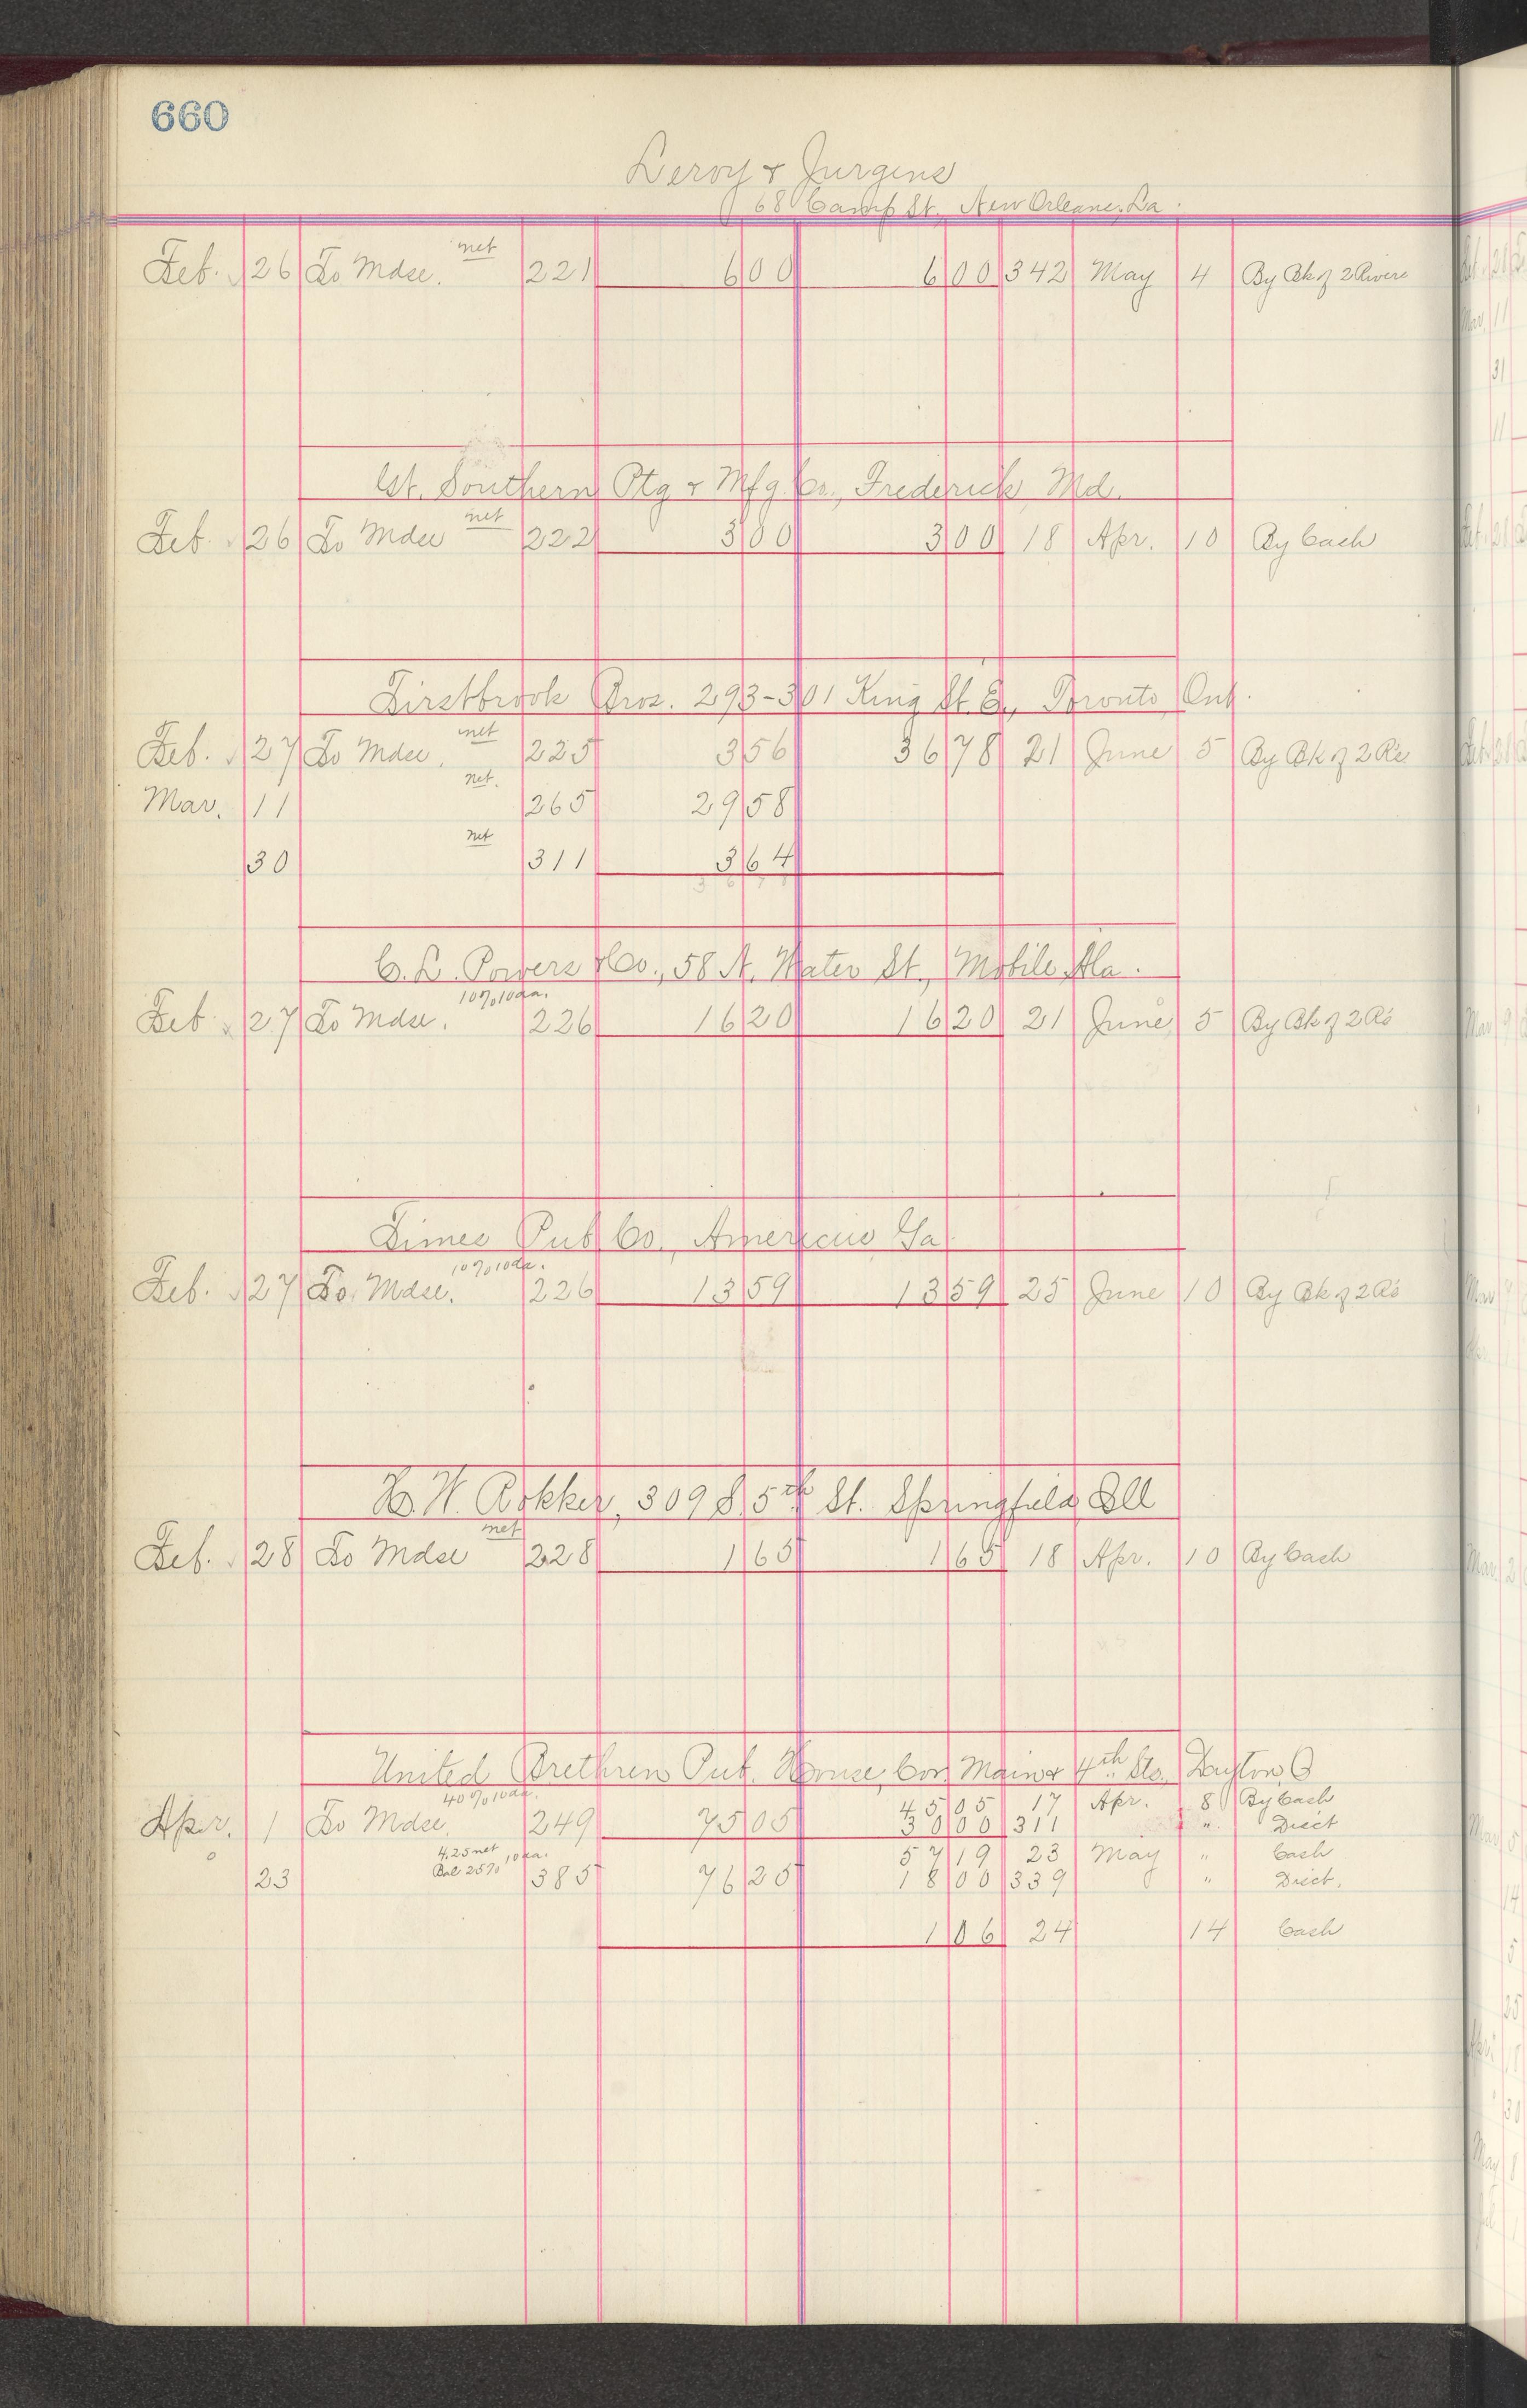 660
Leroy & Jurgens
68 Camp St., New Orleans, La.
Feb. 26 To Mdse. net 221 6 00 6 00 342 May 4 By Bk of 2 Rivers
Gt. Southern Ptg & Mfg. Co., Frederick, Md.
Feb. 26 To Mdse net 222 3 00 3 00 18 Apr. 10 By Cash
Firstbrook Bros. 293-301 King St. E., Toronto, Ont.
Feb. 27 To Mdse. net 225 3 56 36 78 21 June 5 By Bk of 2 Rs
Mar. 11 net. 265 29 58
30 net 311 3 64
3 6 7 8
C. L. Powers & Co., 58 N. Water St., Mobile, Ala.
Feb 27 To Mdse. 10% 10da. 226 16 20 16 20 21 June 5 By Bk of 2 Rs
Times Pub Co., Americus, Ga.
Feb. 27 To Mdse. 10% 10da. 226 13 59 13 59 25 June 10 By Bk of 2 Rs
H. W. Rokker, 309 S. 5th St. Springfield, Ill
Feb. 28 To Mdse net 228 1 65 1 65 18 Apr. 10 By Cash
United Brethren Pub. House, Cor. Main & 4th Sts., Dayton, O
Apr. 1 To Mdse. 40% 10da. 249 75 05 45 05 17 Apr. 8 By Cash
30 00 311 " Disct
4.25 net 57 19 23 May " Cash
23 Bal 25% 10da. 385 76 25 18 00 339 " Disct.
1 06 24 14 Cash